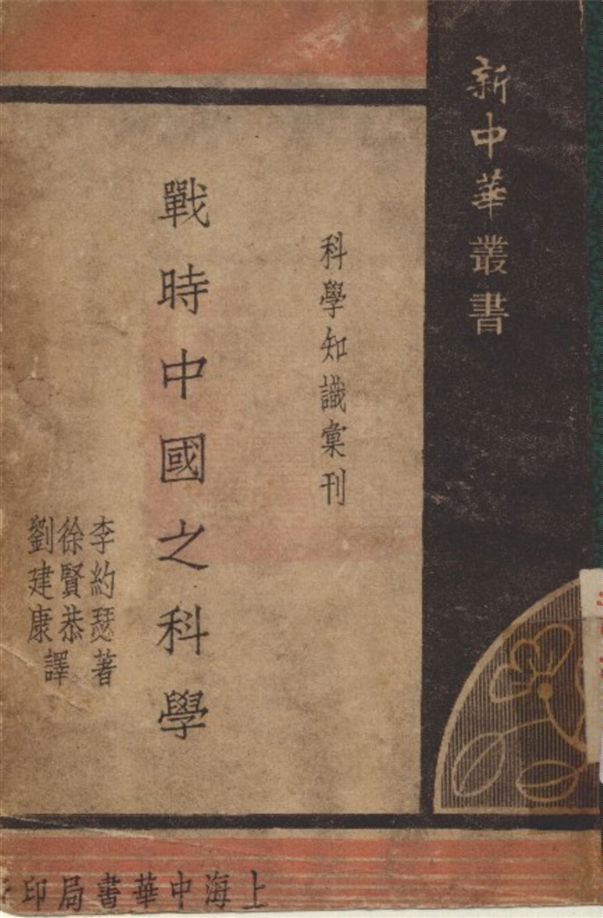 新中華叢書
科學知識彙刊
戰時中國之科學
李約瑟著
徐賢恭
劉建康譯
上海中華書局印